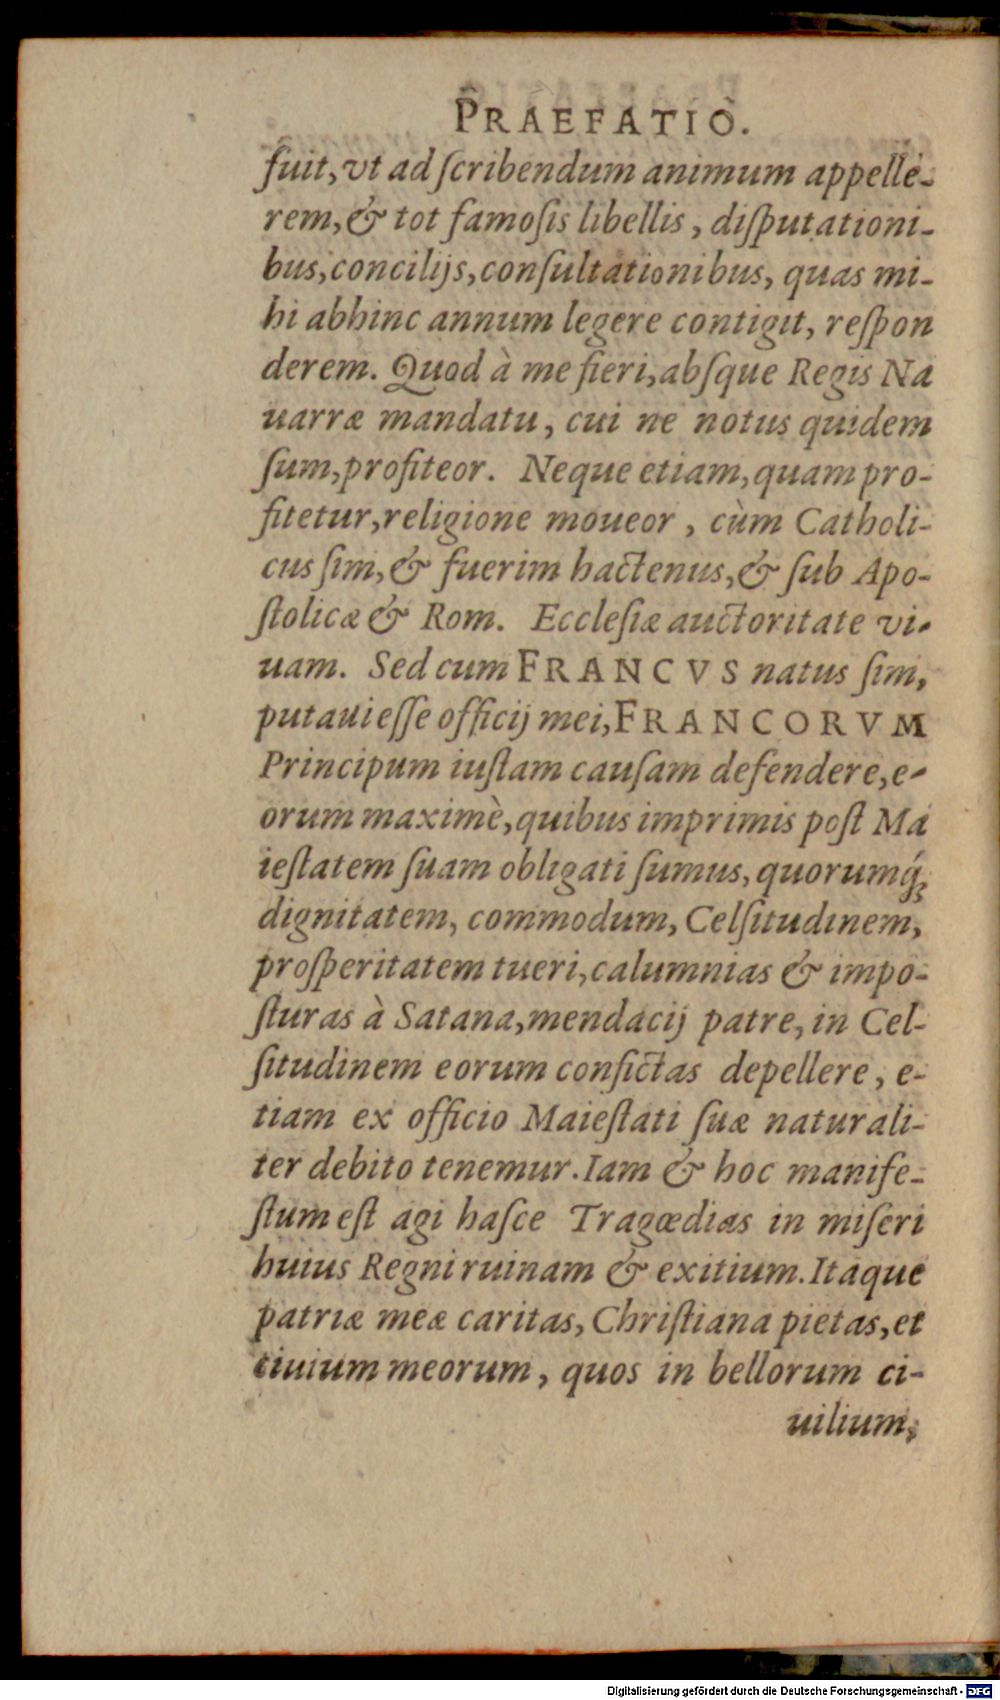 PRAEFATIO.
fuit, vt ad ſcribendum animum appelle-
rem, & tot famoſis libellis, diſputationi-
bus, concilijs, conſultationibus, quas mi-
hi abhinc annum legere contigit, reſpon
derem. Quod à me fieri, abſque Regis Na
uarræ mandatu, cui ne notus quidem
ſum, profiteor. Neque etiam, quam pro-
fitetur, religione moueor, cùm Catholi-
cus ſim, & fuerim hactenus, & ſub Apo-
ſtolicæ & Rom. Eccleſiæ auctoritate vi-
uam. Sed cum FRANCVS natus ſim,
putaui eſſe officij mei, FRANCORVM
Principum iuſtam cauſam defendere, e-
orum maximè, quibus imprimis poſt Ma
ieſtatem ſuam obligati ſumus, quorumq́;
dignitatem, commodum, Celſitudinem,
proſperitatem tueri, calumnias & impo-
ſturas à Satana, mendacij patre, in Cel-
ſitudinem eorum confictas depellere, e-
tiam ex officio Maieſtati ſuæ naturali-
ter debito tenemur. Iam & hoc manife-
ſtum eſt agi haſce Tragœdias in miſeri
huius Regni ruinam & exitium. Itaque
patriæ meæ caritas, Chriſtiana pietas, et
ciuium meorum, quos in bellorum ci-
uilium,
Digitalisierung gefördert durch die Deutsche Forschungsgemeinschaft - DFG